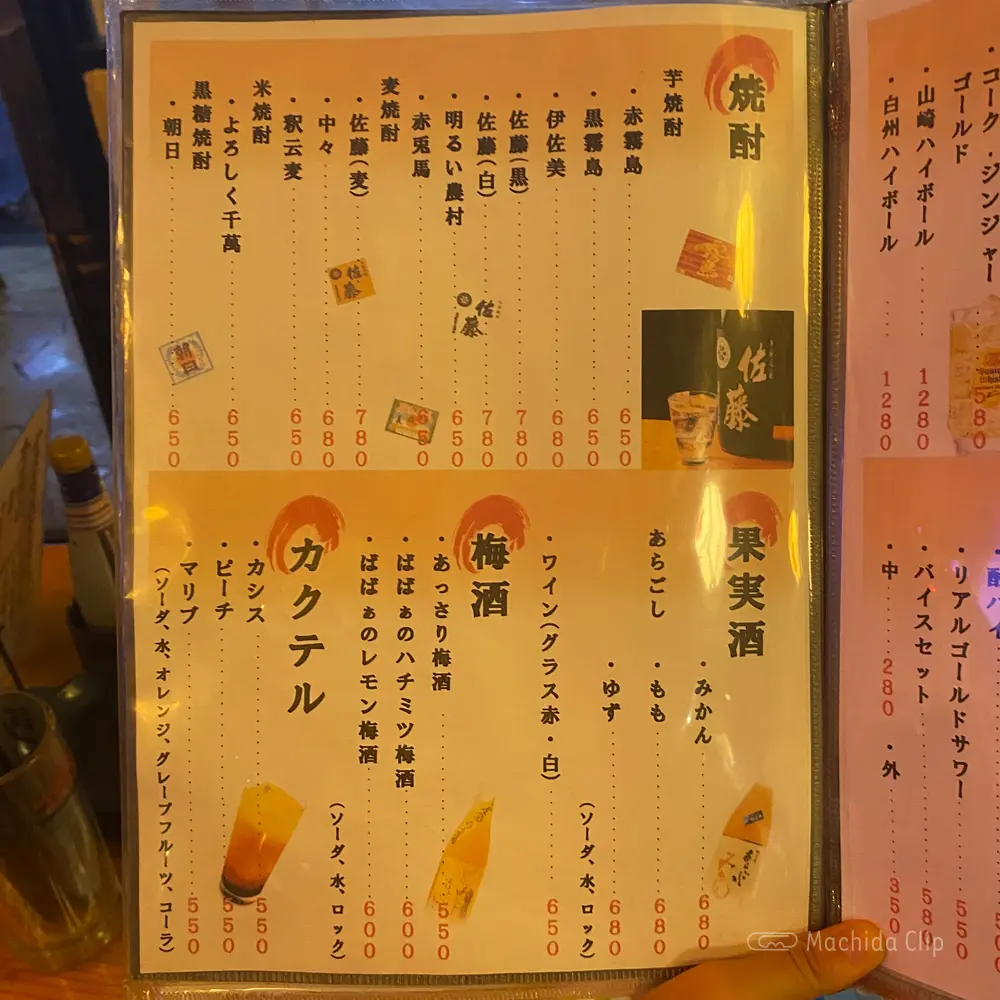 コーク・ジンジャー
ゴールド 580
・山崎ハイボール 1280
・白州ハイボール 1280
・リアルゴールドサワー 550
・バイスセット 580
・中 280 ・外 350
焼酎
芋焼酎
・赤霧島 650
・黒霧島 650
・伊佐美 680
・佐藤(黒) 780
・佐藤(白) 780
・明るい農村 650
・赤兎馬 650
麦焼酎
・佐藤(麦) 780
・中々 680
・釈云麦 650
米焼酎
・よろしく千萬 650
黒糖焼酎
・朝日 650
佐藤
佐藤
佐藤
朝日
果実酒
・みかん 680
あらごし ・もも 680
・ゆず 680
(ソーダ、水、ロック)
・ワイン(グラス赤・白) 650
梅酒
・あっさり梅酒 550
・ばばぁのハチミツ梅酒 600
・ばばぁのレモン梅酒 600
(ソーダ、水、ロック)
カクテル
・カシス 550
・ピーチ 550
・マリブ 550
(ソーダ、水、オレンジ、グレープフルーツ、コーラ)
Machida Clip